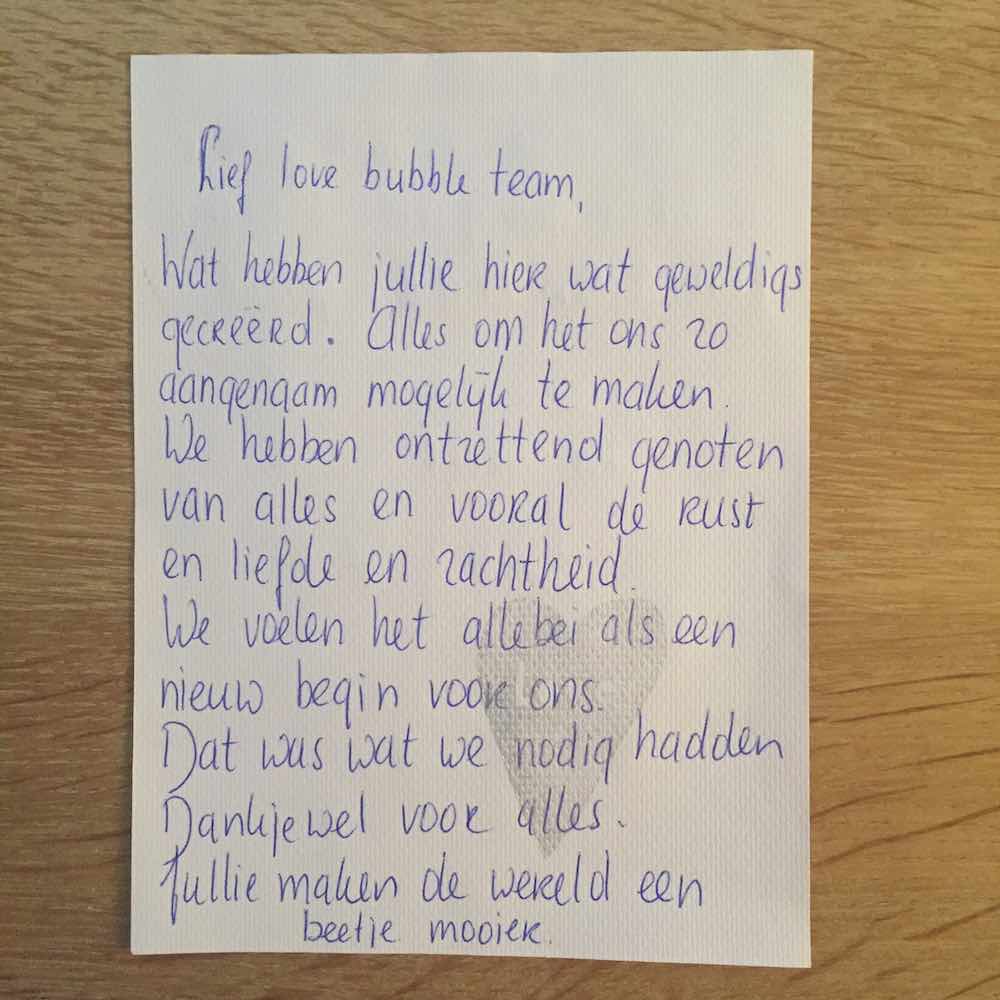 Lief love bubble team,
Wat hebben jullie hier wat geweldigs
gecreëerd. Alles om het ons zo
aangenaam mogelijk te maken.
We hebben ontzettend genoten
van alles en vooral de rust
en liefde en zachtheid.
We voelen het allebei als een
nieuw begin voor ons.
Dat was wat we nodig hadden
Dankjewel voor alles.
Jullie maken de wereld een
beetje mooier.